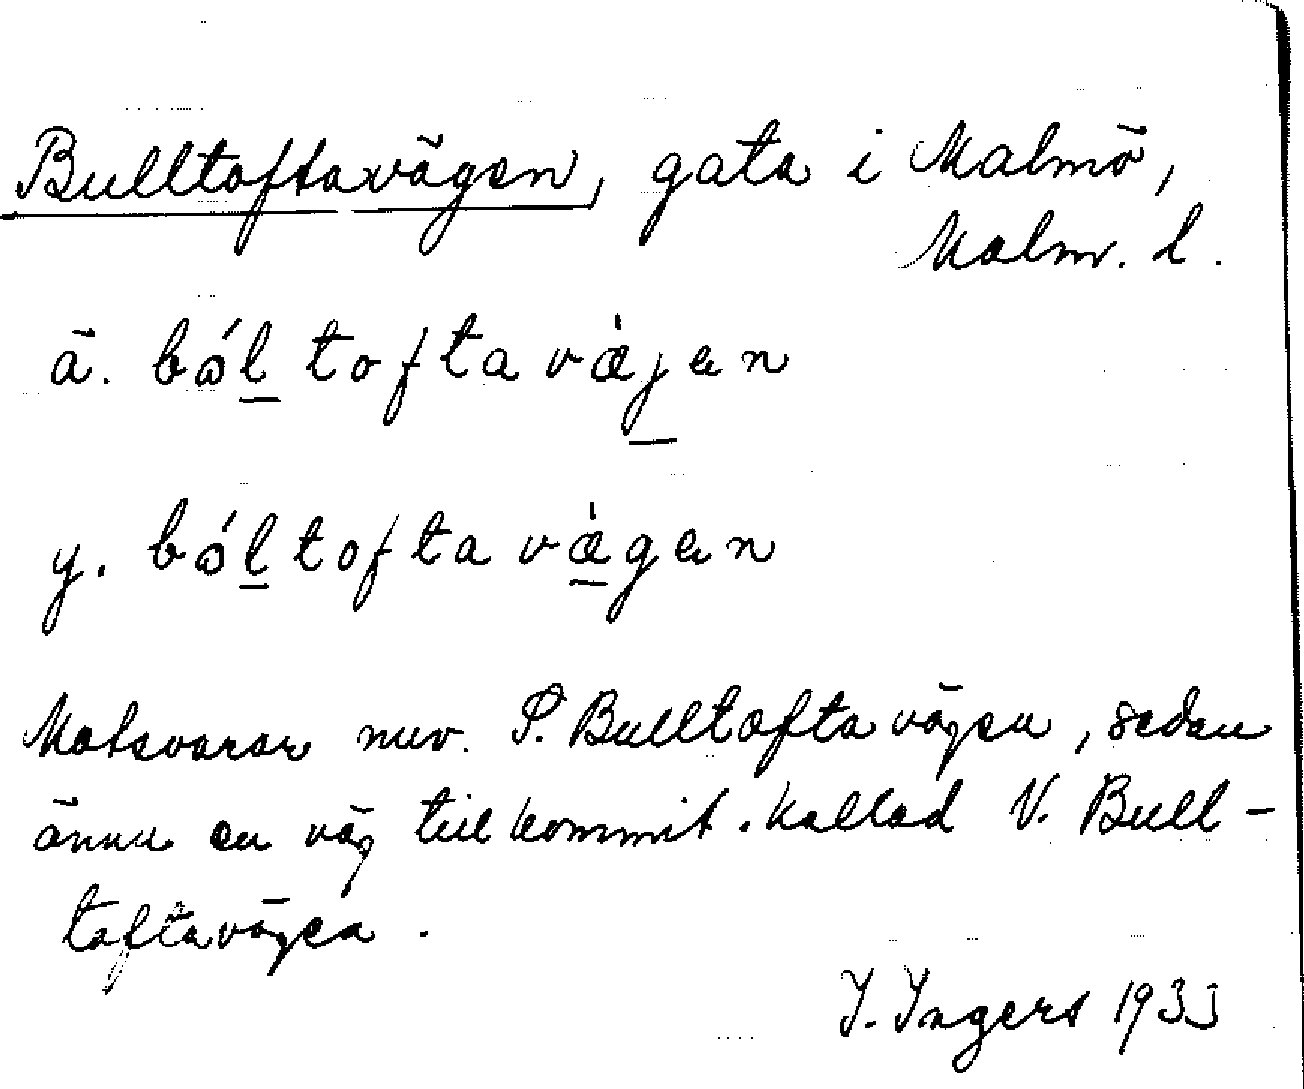 Bulltoftavägen, gata i Malmö,
Malm. l.
ä. bɷ́l̲toftavæ̀j̲ɐn
y. bɷ́l̲toftavæ̲̀gɐn
Motsvarar nuv. S. Bulltoftavägen, sedan
ännu en väg tillkommit. kallad V. Bull-
toftavägen.
I. Ingers 1933